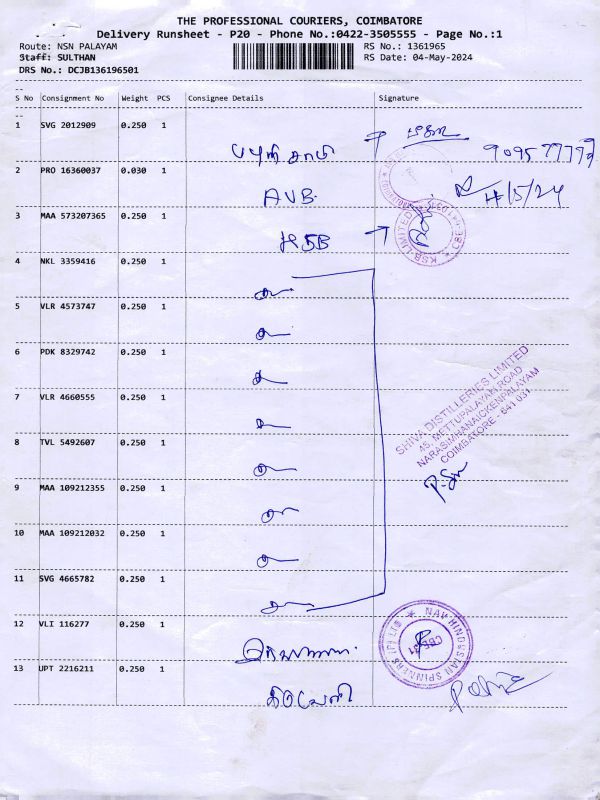 THE PROFESSIONAL COURIERS, COIMBATORE
Delivery Runsheet - P20 - Phone No.:0422-3505555 - Page No.:1
Route: NSN PALAYAM
RS No.: 1361965
Staff: SULTHAN
RS Date: 04-May-2024
DRS No.: DCJB136196501
S No Consignment No Weight PCS Consignee Details Signature
1 SVG 2012909 0.250 1
2 PRO 16360037 0.030 1 AVB 4/5/24
3 MAA 573207365 0.250 1 KSB
KSB LIMITED
4 NKL 3359416 0.250 1
5 VLR 4573747 0.250 1
6 PDK 8329742 0.250 1
7 VLR 4660555 0.250 1
SHIVA DISTILLERIES LIMITED
45, METTUPALAYAM ROAD
NARASIMHANAICKENPALAYAM
COIMBATORE - 641 031
8 TVL 5492607 0.250 1
9 MAA 109212355 0.250 1
10 MAA 109212032 0.250 1
11 SVG 4665782 0.250 1
12 VLI 116277 0.250 1
NAV HINDUSTAN SPINNERS (P) LTD
13 UPT 2216211 0.250 1